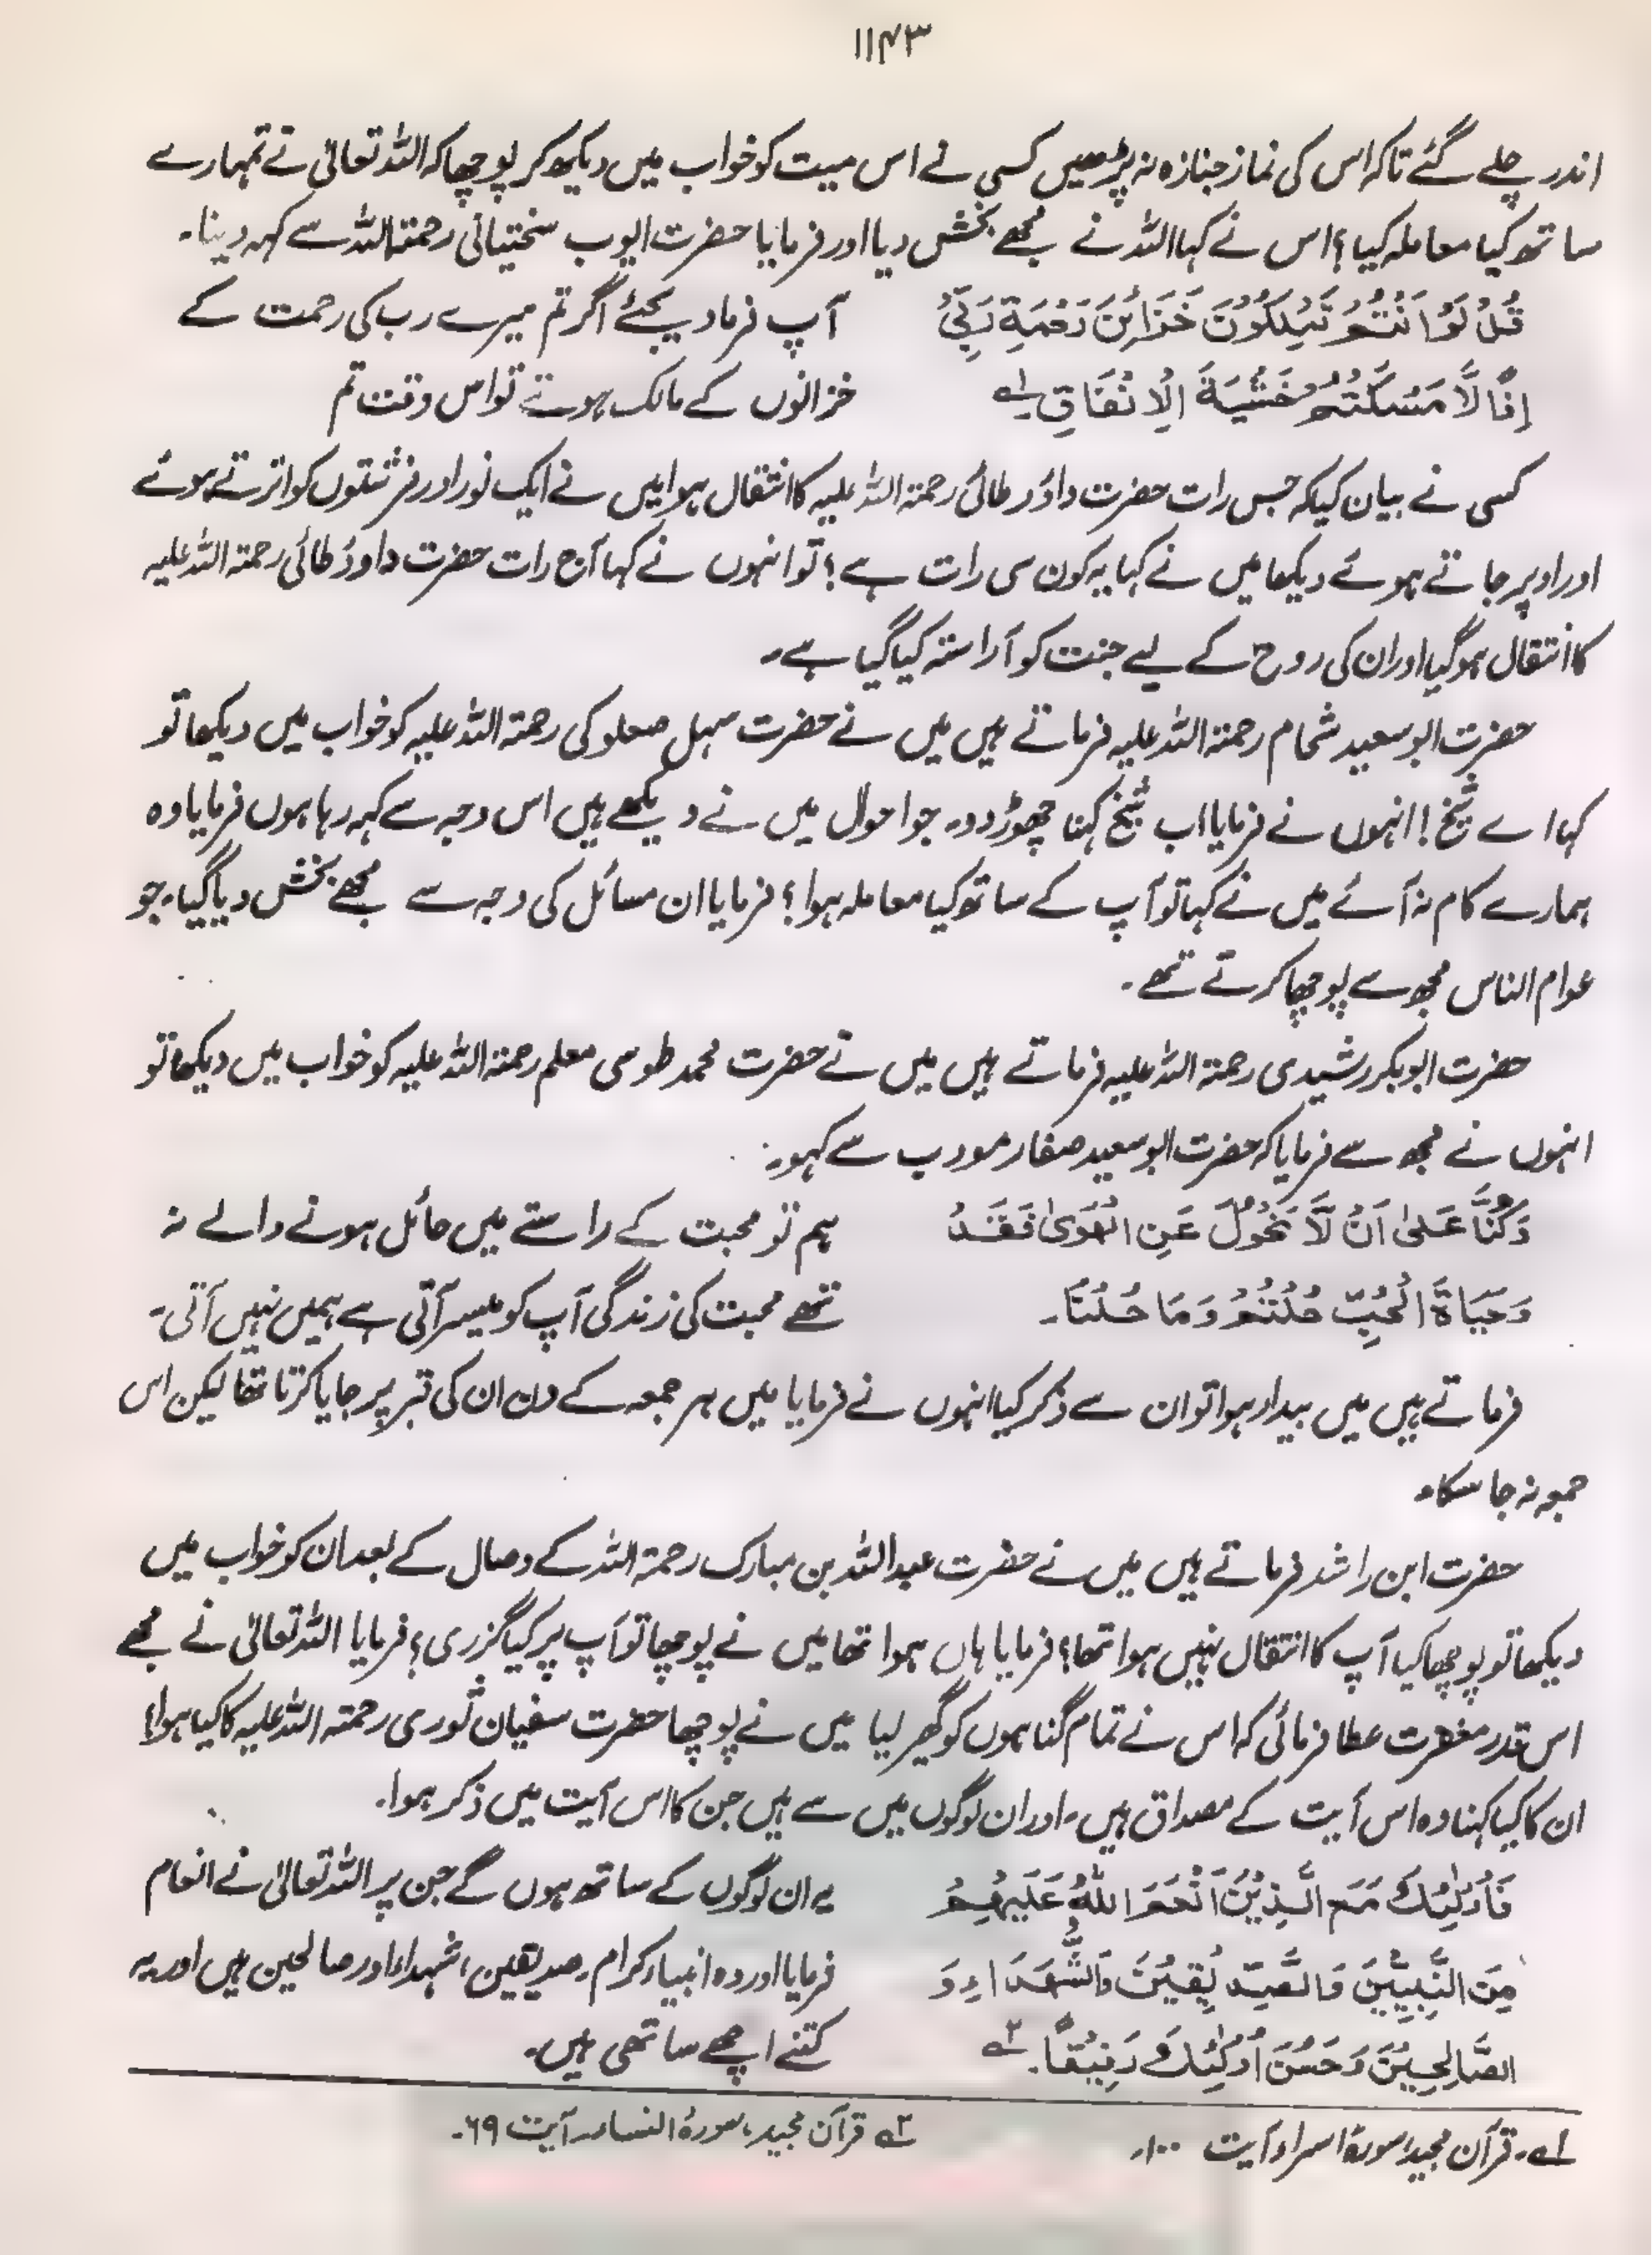 ۱۱۴۳
اندر چلے گئے تاکہ اس کی نماز جنازہ نہ پڑھیں کسی نے اس میت کو خواب میں دیکھ کر پوچھا کہ اللہ تعالیٰ نے تمہارے
ساتھ کیا معاملہ کیا؟ اس نے کہا اللہ نے مجھے بخش دیا اور فرمایا حضرت ایوب سختیانی رحمۃ اللہ سے کہہ دینا۔
قُلْ لَوْ اَنْتُمْ تَمْلِكُوْنَ خَزَائِنَ رَحْمَةِ رَبِّیْ آپ فرما دیجئے اگر تم میرے رب کی رحمت کے
اِذًا لَّا مَسَكْتُمْ خَشْيَةَ الْاِنْفَاقِ ۱؎ خزانوں کے مالک ہوتے تو اس وقت تم
کسی نے بیان کیا کہ جس رات حضرت داؤد طائی رحمۃ اللہ علیہ کا انتقال ہوا میں نے ایک نور اور فرشتوں کو اترتے ہوئے
اور اوپر جاتے ہوئے دیکھا میں نے کہا یہ کون سی رات ہے؟ تو انہوں نے کہا آج رات حضرت داوؤد طائی رحمۃ اللہ علیہ
کا انتقال ہو گیا اور ان کی روح کے لیے جنت کو آراستہ کیا گیا ہے۔
حضرت ابو سعید شحام رحمۃ اللہ علیہ فرماتے ہیں میں نے حضرت سہل صعلوکی رحمۃ اللہ علیہ کو خواب میں دیکھا تو
کہا اے شیخ! انہوں نے فرمایا اب شیخ کہنا چھوڑ دو۔ جو احوال میں نے دیکھے ہیں اس وجہ سے کہہ رہا ہوں فرمایا وہ
ہمارے کام نہ آئے میں نے کہا تو آپ کے ساتھ کیا معاملہ ہوا؟ فرمایا ان مسائل کی وجہ سے مجھے بخش دیا گیا، جو
عوام الناس مجھ سے پوچھا کرتے تھے۔
حضرت ابوبکر رشیدی رحمۃ اللہ علیہ فرماتے ہیں میں نے حضرت محمد طوسی معلم رحمۃ اللہ علیہ کو خواب میں دیکھا تو
انہوں نے مجھ سے فرمایا کہ حضرت ابو سعید صفار مودب سے کہو۔
وَكُنَّا عَلىٰ اَنْ لَّا نَحُوْلَ عَنِ الْهَوىٰ فَقَدْ ہم تو محبت کے راستے میں حائل ہونے والے نہ
وَحَيَاةَ الْحُبِّ حُلْتُمْ وَمَا حُلْنَا۔ تھے محبت کی زندگی آپ کو میسر آتی ہے ہمیں نہیں آتی۔
فرماتے ہیں میں بیدار ہوا تو ان سے ذکر کیا انہوں نے فرمایا میں ہر جمعہ کے دن ان کی قبر پر جایا کرتا تھا لیکن اس
جمعہ نہ جا سکا۔
حضرت ابن راشد فرماتے ہیں میں نے حضرت عبداللہ بن مبارک رحمۃ اللہ کے وصال کے بعد ان کو خواب میں
دیکھا تو پوچھا کیا آپ کا انتقال نہیں ہوا تھا؟ فرمایا ہاں ہوا تھا میں نے پوچھا تو آپ پر کیا گزری؟ فرمایا اللہ تعالیٰ نے مجھے
اس قدر مغفرت عطا فرمائی کہ اس نے تمام گناہوں کو گھیر لیا میں نے پوچھا حضرت سفیان ثوری رحمتہ اللہ علیہ کا کیا ہوا؟
ان کا کیا کہنا وہ اس آیت کے مصداق ہیں۔ اور ان لوگوں میں سے ہیں جن کا اس آیت میں ذکر ہوا۔
فَأُولٰئِكَ مَعَ الَّذِيْنَ اَنْعَمَ اللّٰهُ عَلَيْهِمْ یہ ان لوگوں کے ساتھ ہوں گے جن پر اللہ تعالیٰ نے انعام
مِنَ النَّبِيِّيْنَ وَالصِّدِّيْقِيْنَ وَالشُّهَدَاءِ وَ فرمایا اور وہ انبیاء کرام، صدیقین، شہداء اور صالحین ہیں اور یہ
الصَّالِحِيْنَ وَحَسُنَ اُولٰئِكَ رَفِيْقًا۔ ۲؎ کتنے اچھے ساتھی ہیں۔
۱؎۔ قرآن مجید، سورۂ اسراء آیت ۱۰۰۔ ۲؎ قرآن مجید، سورۂ النساء آیت ۶۹۔